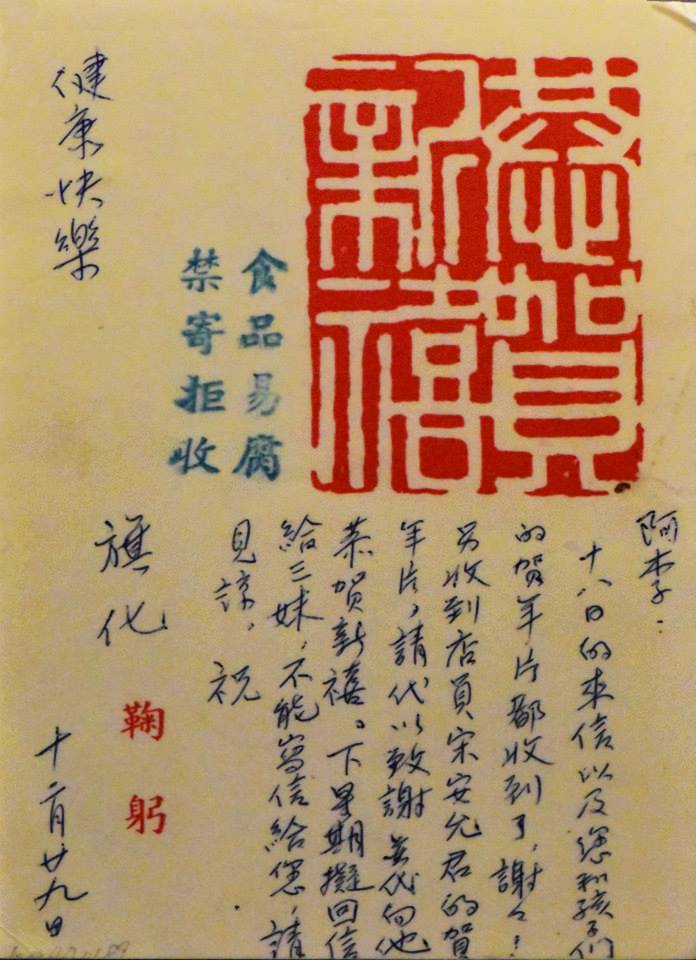 恭賀
新禧
阿李：
十八日的來信以及您和孩子們
的賀年片都收到了，謝々！
另收到店員宋安允君的賀
年片，請代以致謝並代向他
恭賀新禧。下星期擬回信
給三妹，不能寫信給您，請
見諒，祝
健康快樂
旗化
鞠躬
十二月廿九日
食品易腐
禁寄拒收